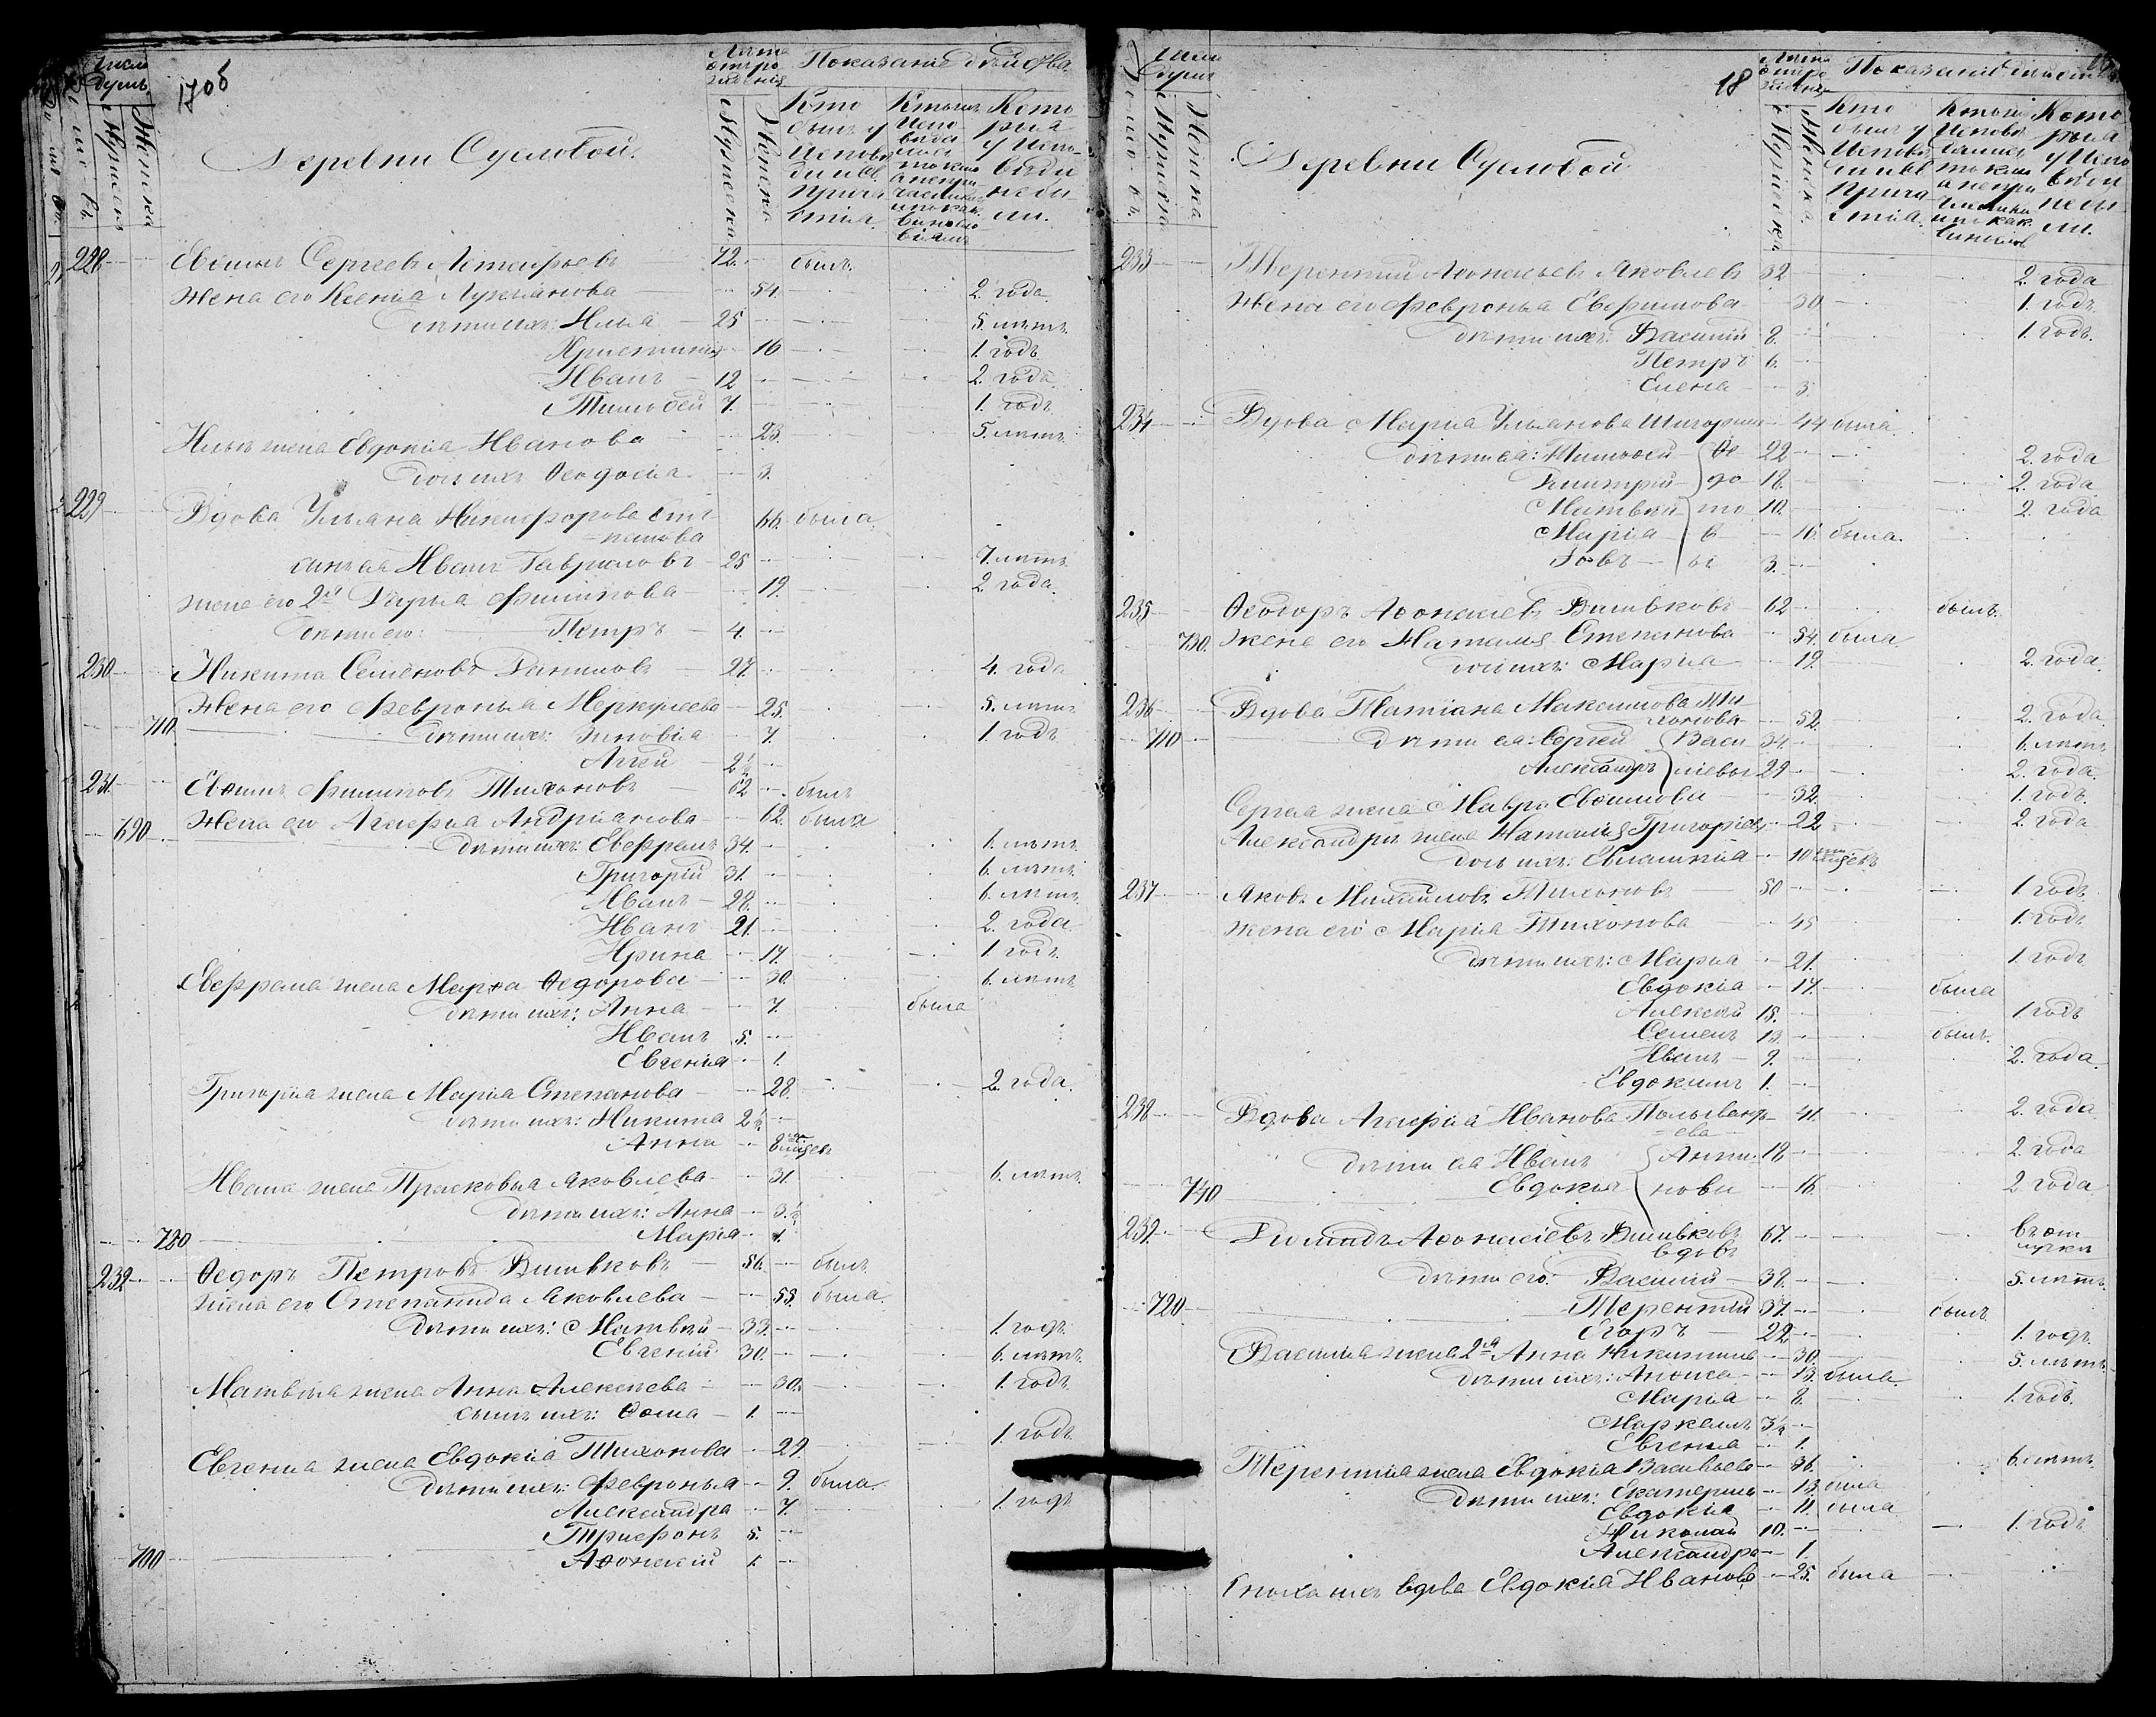 17об
Число душъ.
Мужеска
Женска
Деревни Сусловой.
Лѣта отъ рождения
Мужеска
Женска
Показаніе дѣйства.
Кто былъ у исповѣди и св. причастія.
Кто былъ исповѣдался токмо а не причастился и по какимъ винословіямъ
Которыя у исповѣди не были.
228 Евѳимъ Сергеевъ Астафьевъ 72. былъ.
Жена его Ксенія Лукьянова 54. 2. года.
дѣти ихъ: Илья 25 5. лѣтъ
Христина 16 1. годъ
Иванъ 12 2. года
Тимоѳей 7. 1. годъ
Ильи жена Евдокія Иванова 23. 5. лѣтъ
дочь ихъ Ѳеодосія 3.
229 Вдова Ульяна Никифорова Сте-
панова 66. была
сынъ ея Иванъ Гавриловъ 25 7. лѣтъ
жена его 2я Дарья Филипова 19. 2. года.
дѣти его: Петръ 4.
230 Никита Семеновъ Даниловъ 27. 4. года
Жена его Февронья Меркурьева 25. 5. лѣтъ
710 дѣти ихъ: Зиновія 7. 1. годъ
Аггей 2½
231. Евѳимъ Филиповъ Тихоновъ 62 былъ
690 Жена его Агафья Андріанова 62. была
дѣти ихъ: Евфремъ 34. 1. лѣтъ
Григорій 31. 6. лѣтъ
Иванъ 28. 6. лѣтъ
Иванъ 21. 2. года
Ирина 17. 1. годъ
Евфрема жена Марѳа Ѳедорова 30. 6. лѣтъ
дѣти ихъ: Анна 7. была
Иванъ 5.
Евгенія 1.
Григорья жена Марья Степанова 28. 2. года.
дѣти ихъ: Никита 2½
Анна 8 мѣсяцевъ
Ивана жена Прасковья Яковлева 31. 6. лѣтъ
дѣти ихъ: Анна 3½
720 Марія 1.
232 Ѳедоръ Петровъ Вшивковъ 56. былъ
жена его Степанида Яковлева 55. была.
дѣти ихъ: Матвѣй 33. 1. годъ
Евгеній 30. 6. лѣтъ
Матвѣя жена Анна Алексѣева 30. 1. годъ
сынъ ихъ: Ѳома 1.
Евгенія жена Евдокія Тихонова 29. 1. годъ.
дѣти ихъ: Февронья 9. была.
Александра 7. 1. годъ
Трифонъ 5.
700 Аѳонасій 1.
18
Число душъ
Мужеска
Женска
Деревни Сусловой
Лѣта отъ рожденія
Мужеска
Женска.
Показаніе дѣйства
Кто былъ у исповѣди и св. причастія.
Которыя у исповѣди не были.
233 Терентій Аѳонасьевъ Яковлевъ 32. 2. года
Жена его Февронья Евфимова 30 1. годъ.
дѣти ихъ: Василій 8. 1. годъ.
Петръ 6.
Елена 3.
234 Вдова Марья Ульянова 44 была.
дѣти ея: Тимоѳей Ѳе 22 2. года
Дмитрій до 18. 2. года
Матвѣй то 10. 2. года
Марія в 16. была.
Іовъ ы 3.
235 Ѳеодоръ Аѳонасіевъ Вшивковъ 62 былъ.
730. Жена его Наталья Степанова 54. была
дочь ихъ: Марья 19. 2. года.
236 Вдова Татіана Максимова Ти-
хонова 52. 2. года.
710 дѣти ея: Сергей Васи 34. 6. лѣтъ
Александръ льевы 29 2. года.
Сергея жена Мавра Евѳимова 32. 1. годъ.
Александра жена Наталія Григорьева 22 2. года
дочь ихъ: Евлампія 10 мѣсяцевъ
237 Яковъ Михайловъ Тихоновъ 50 1 годъ.
жена его Марья Тихонова 45 1. годъ
дѣти ихъ: Марья 21. 1. годъ
Евдокія 17. была
Алексѣй 15. 1 годъ
Семенъ 13. былъ.
Иванъ 9. 2. года.
Евдокимъ 1.
238 Вдова Агафья Иванова
ева 41. 2. года
дѣти ея Иванъ Анти 18 2. года
740 Евдокія повы 16. 2 года
239. Аѳонасіевъ Вшивковъ
вдовъ 67. въ отлучкѣ
дѣти его: Василій 38. 5. лѣтъ.
720 Терентій 37. былъ.
Егоръ 22. 1. годъ.
Василья жена 2я Анна Никитина 30. 5. лѣтъ.
дѣти ихъ: Анѳиса 13. была.
Марья 8. 1. годъ.
Маркелъ 3½
Евгенія 1.
Терентія жена Евдокія Васильева 36. 6. лѣтъ.
дѣти ихъ: Екатерина 13. была
Евдокія 11. была
Николай 10. 1. годъ
Александра 1.
Сноха ихъ вдова Евдокія Иванова 25. была